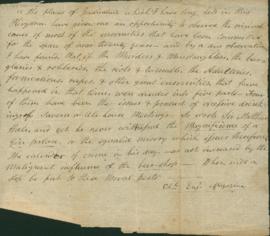 in the places of Judicature in which I have long sat in this
Kingdom have given me an opportunity to observe the original
cause of most of the enormities that have been committed
for the space of near twenty years — and by a due observation
I have found, that if the Murders & Manslaughters, the bur-
glaries & robberies, the riots & tumults, the adulteries,
fornications, rapes & other great enormities that have
happened in that time, were divided into five parts — Four
of them have been the issues & product of excessive drink-
ing of Tavern or Ale house Meetings. So wrote Sir Matthew
Hale, and yet he never witnessed the Magnificence of a
Gin palace, or the squalid misery which
the calendar of crime in his day, was not increased by the
Malignant influence of the beer-shop — When will a
stop be put to these Moral Pests